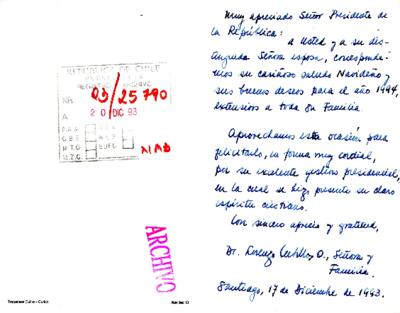 REPUBLICA DE CHILE
PRESIDENCIA
REGISTRO Y ARCHIVO
NR. 93/25790
A 20 DIC 93
P.A.A.
C.B.E.
M.T.O.
M.Z.C.
EDEC
ARCHIVO
Muy apreciado Señor Presidente de
la República:
a Usted y a su dis-
tinguida Señora esposa, correspondo
su cariñoso saludo Navideño y
sus buenos deseos para el año 1994,
extensivos a toda su Familia
Aprovechamos esta ocasión para
felicitarlo, en forma muy cordial,
por su excelente gestión presidencial,
en la cual se hizo presente su claro
espíritu cristiano.
Con sincero aprecio y gratitud,
Dr. Lorenzo O., Señora y
Familia.
Santiago, 17 de Diciembre de 1993.